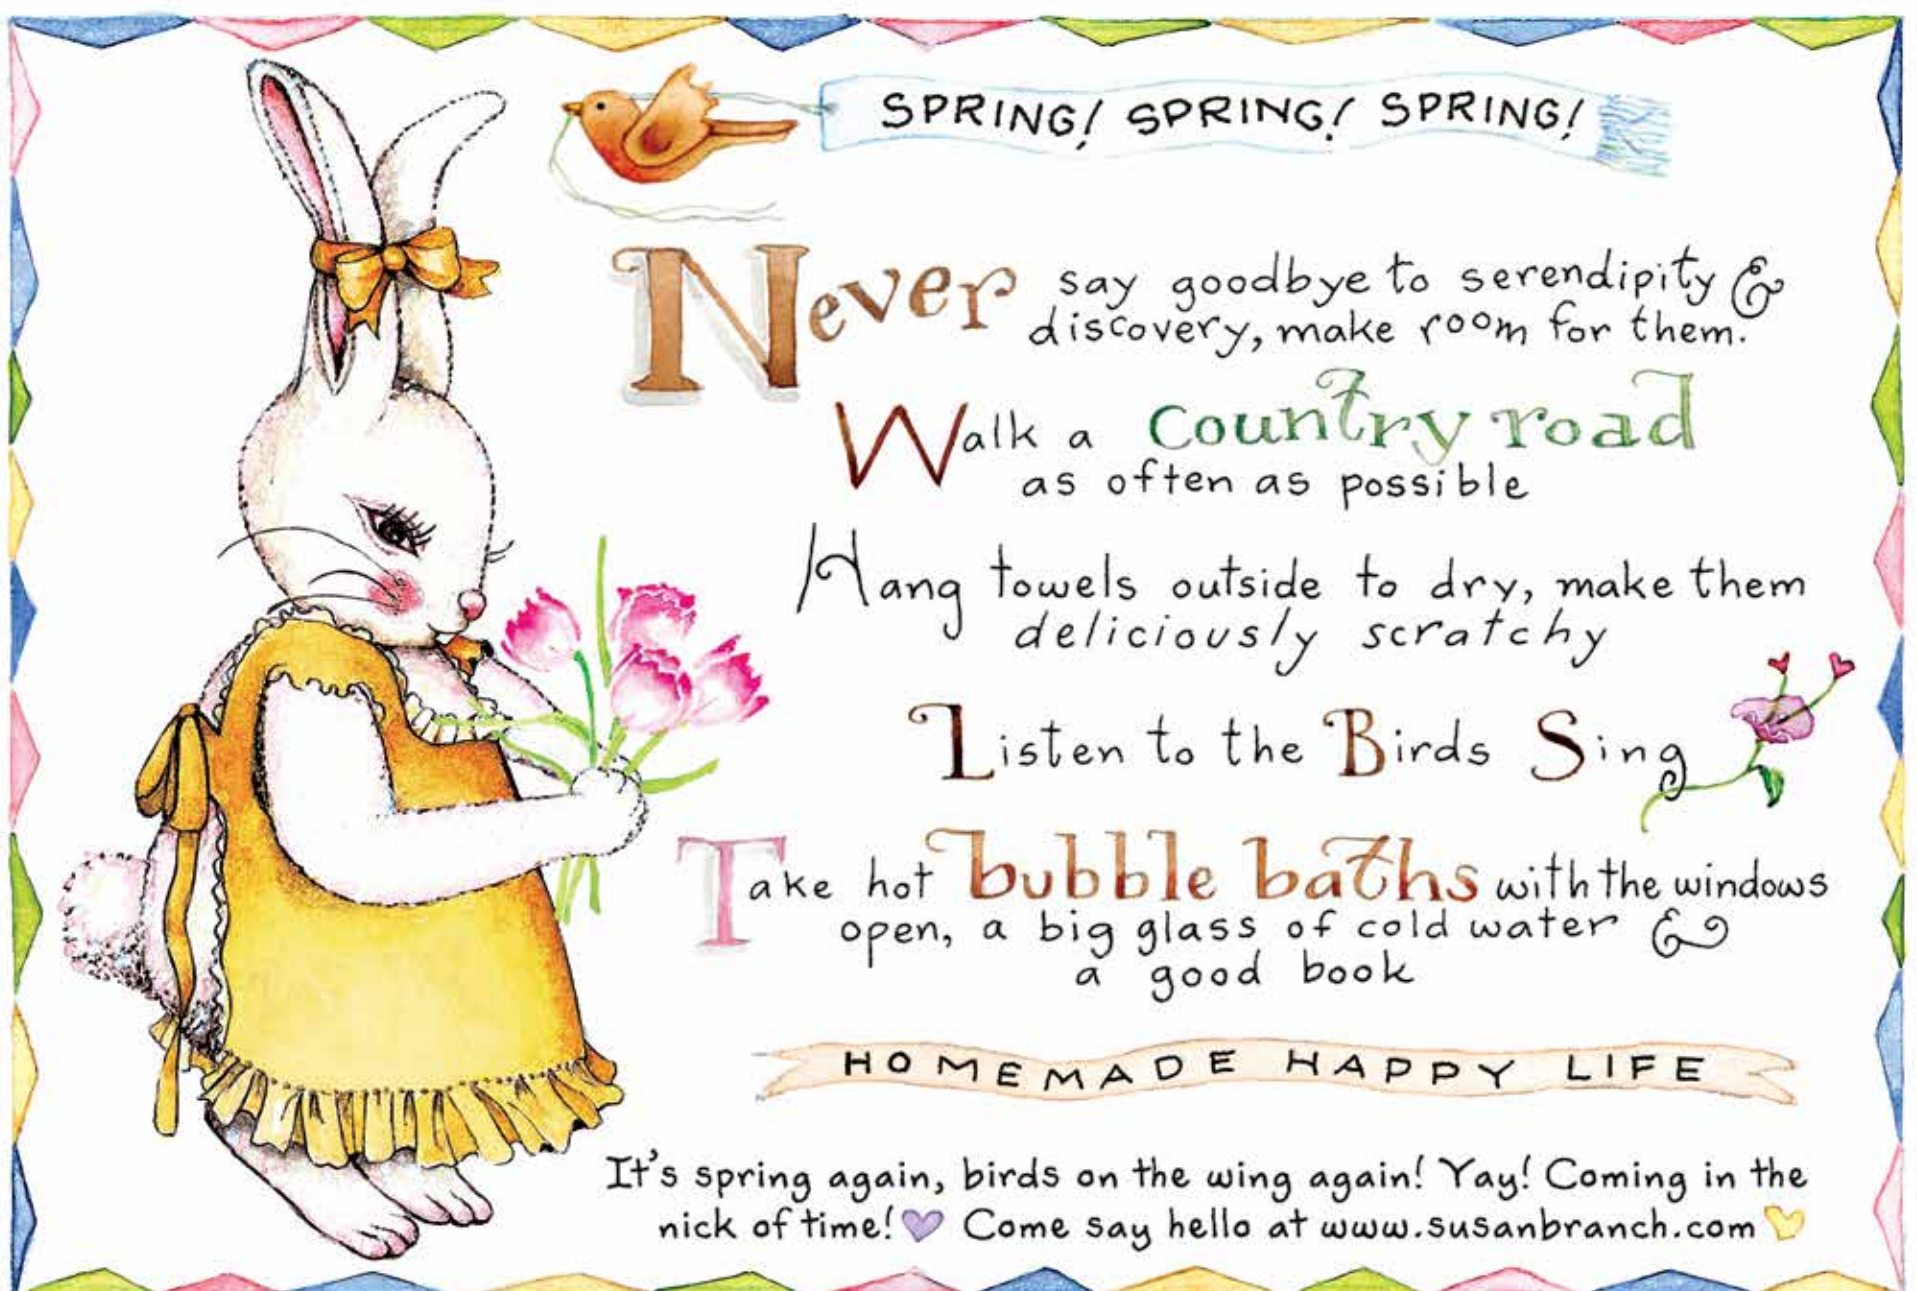 SPRING! SPRING! SPRING!
Never say goodbye to serendipity &
discovery, make room for them.
Walk a Country road
as often as possible
Hang towels outside to dry, make them
deliciously scratchy
Listen to the Birds Sing
Take hot bubble baths with the windows
open, a big glass of cold water &
a good book
HOMEMADE HAPPY LIFE
It's spring again, birds on the wing again! Yay! Coming in the
nick of time! Come say hello at www.susanbranch.com